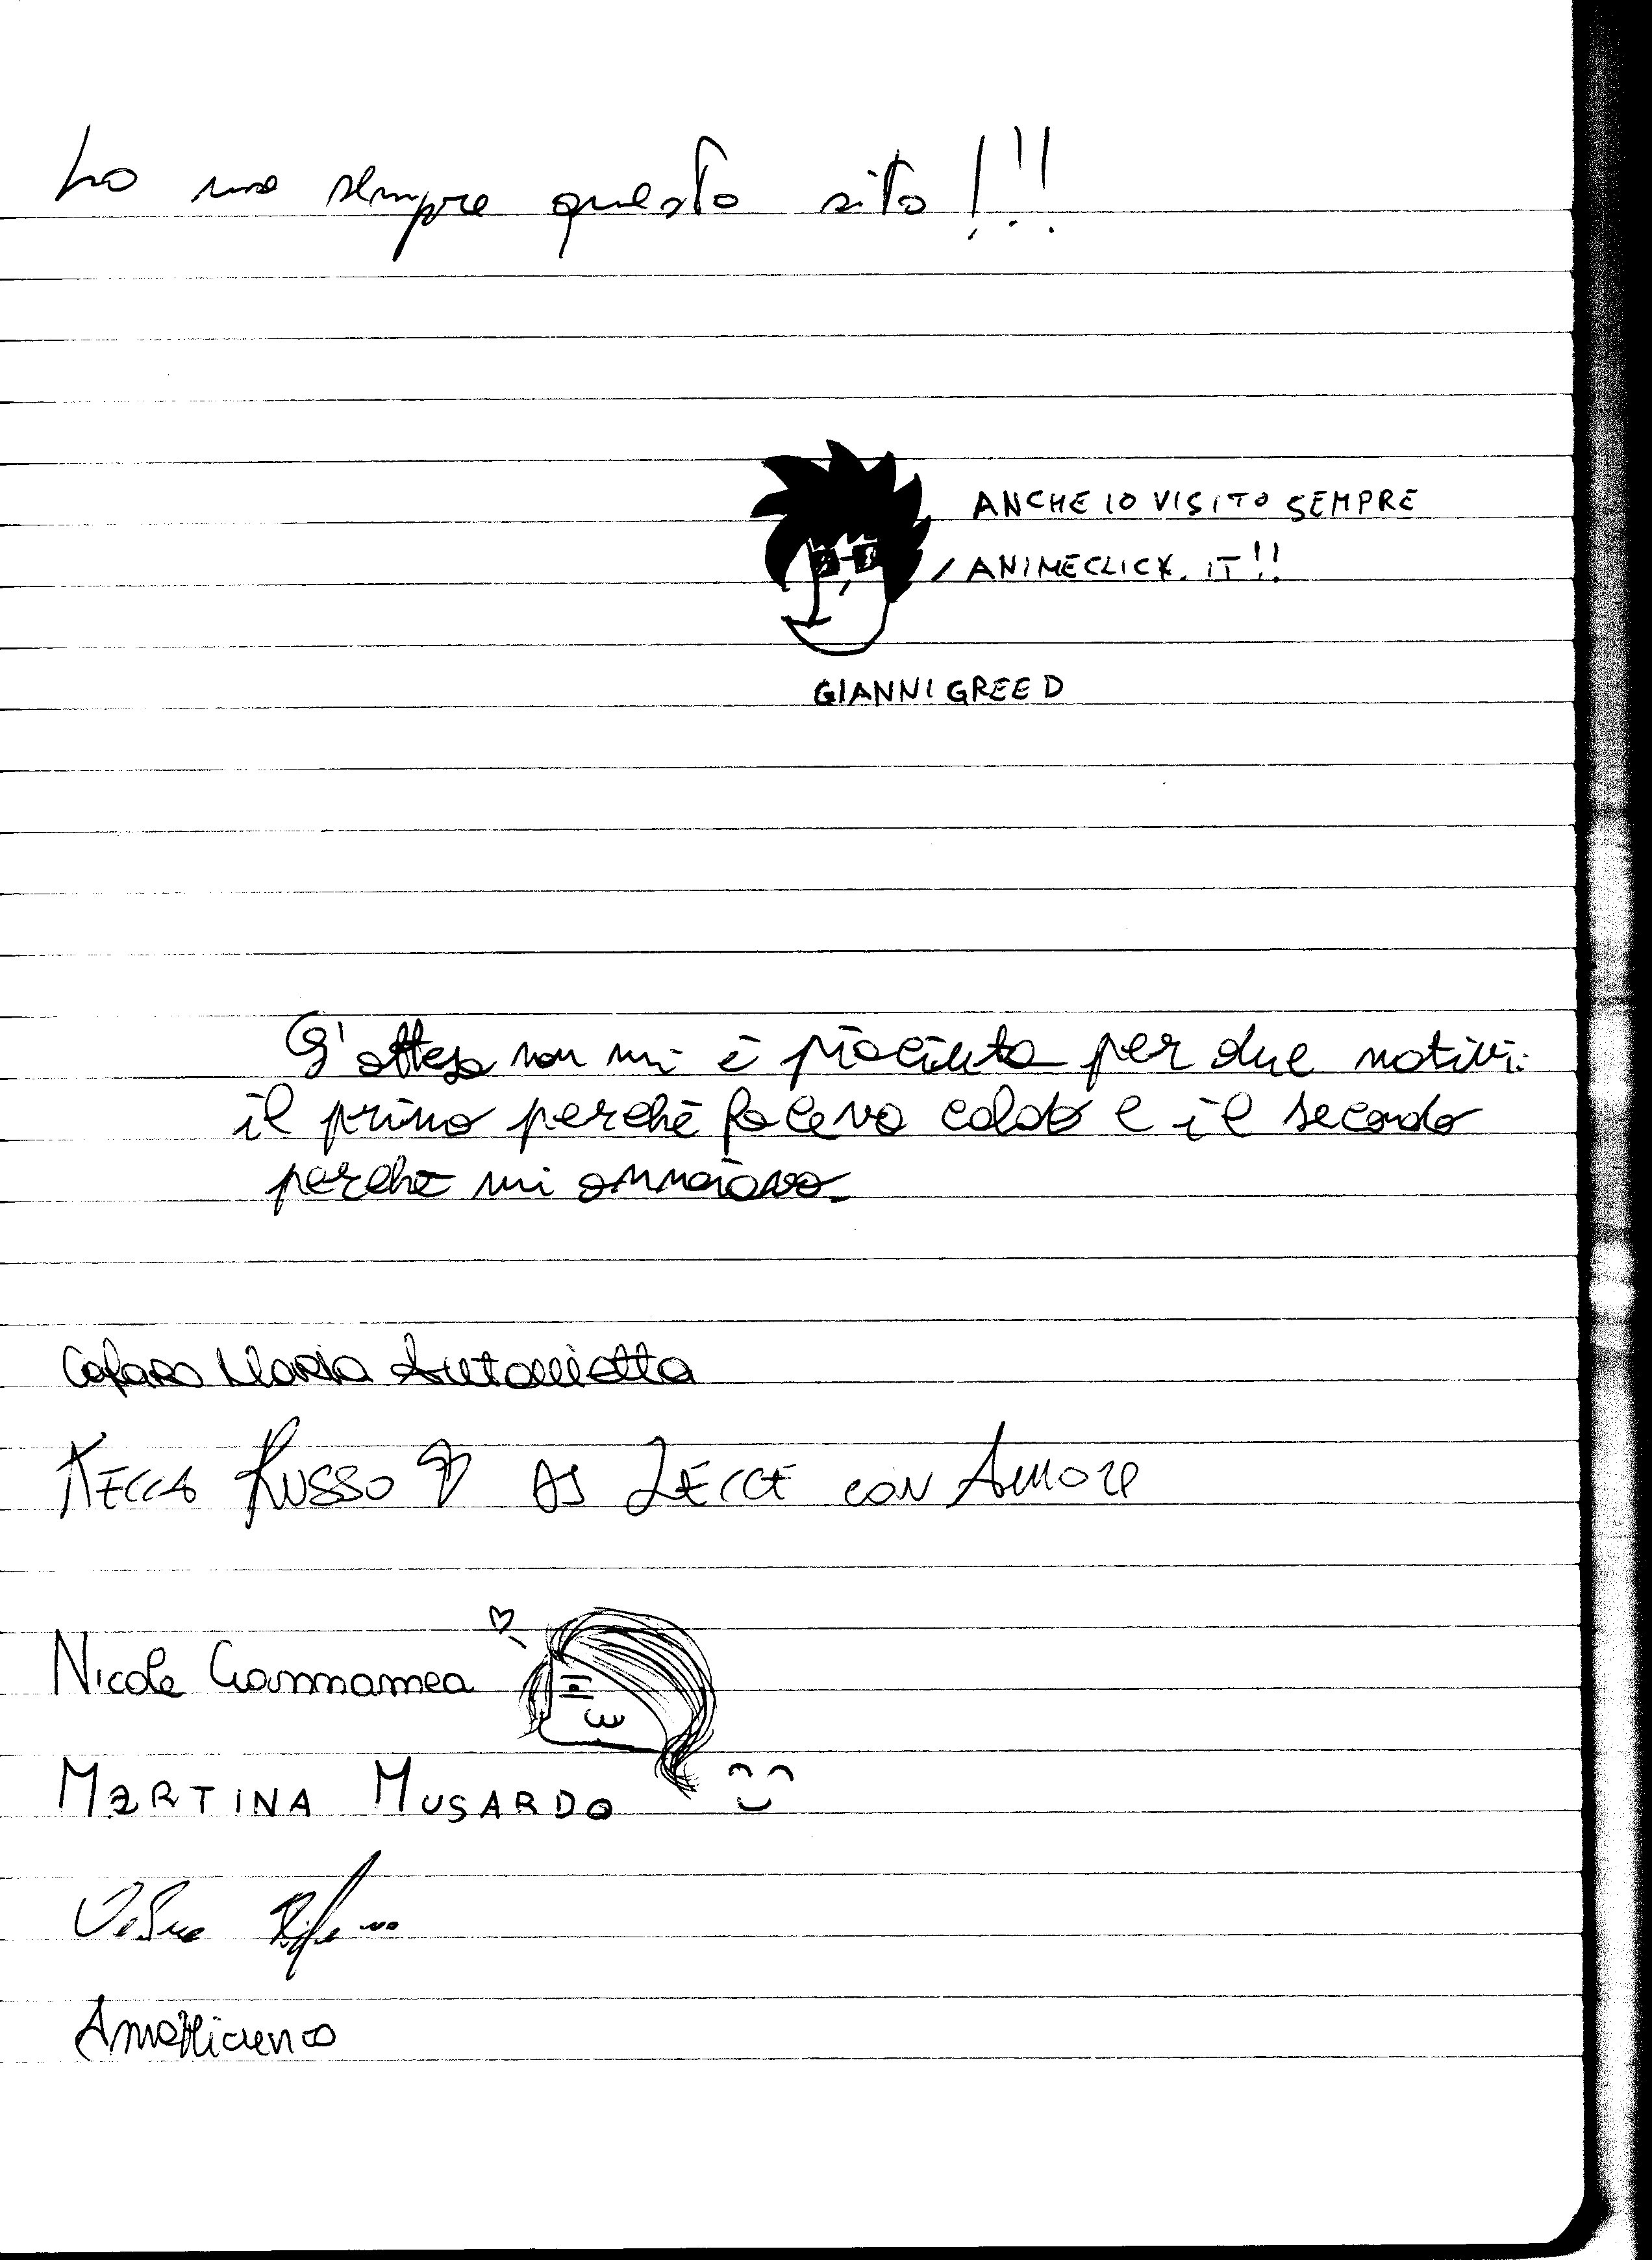 Lo uso sempre questo sito!!!
ANCHE IO VISITO SEMPRE
ANIMECLICK.IT!!
GIANNIGREED
L'attesa non mi è piaciuta per due motivi:
il primo perchè faceva caldo e il secondo
perchè mi annoiavo
Cafaro Maria Antonietta
Kecca Russo DA LECCE CON AMORE
Nicole Giannamea
MARTINA MUSARDO